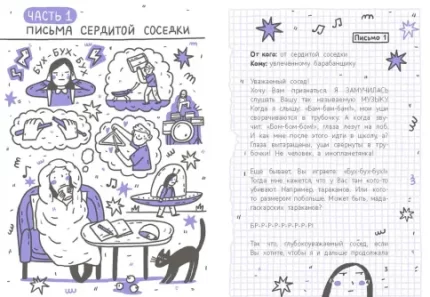 ЧАСТЬ 1
ПИСЬМА СЕРДИТОЙ СОСЕДКИ
БУХ-БУХ-БУХ
Письмо 1
От кого: от сердитой соседки
Кому: увлеченному барабанщику
Уважаемый сосед!
Хочу Вам признаться. Я ЗАМУЧИЛАСЬ
слушать Вашу так называемую МУЗЫКУ.
Когда я слышу: «Бам-бам-бам!», мои уши
сворачиваются в трубочку. А когда зву-
чит: «Бом-бом-бом!», глаза лезут на лоб.
И как мне после этого идти в школу?
Глаза вытаращены, уши свернуты в тру-
бочки! Не человек, а инопланетянка!
Еще бывает, Вы играете: «Бух-бух-бух!»
Тогда мне кажется, что у Вас там кого-то
убивают. Например, тараканов. Или кого-
то размером побольше. Может быть, мада-
гаскарских тараканов?
БР-Р-Р-Р-Р-Р-Р-Р!
Так что, глубокоуважаемый сосед, если
Вы хотите, чтобы я и дальше продолжала